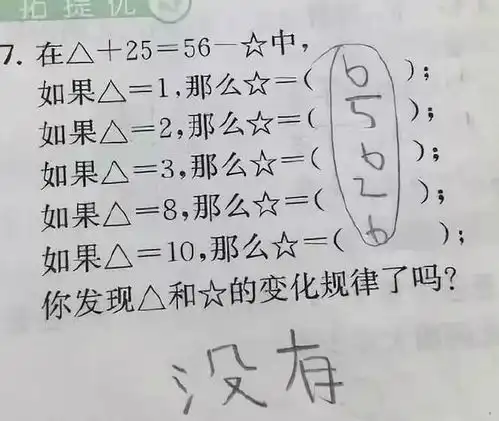 拓提优
7. 在△+25=56-☆中,
如果△=1,那么☆=( 6 );
如果△=2,那么☆=( 5 );
如果△=3,那么☆=( 6 );
如果△=8,那么☆=( 2 );
如果△=10,那么☆=( 6 );
你发现△和☆的变化规律了吗?
没有